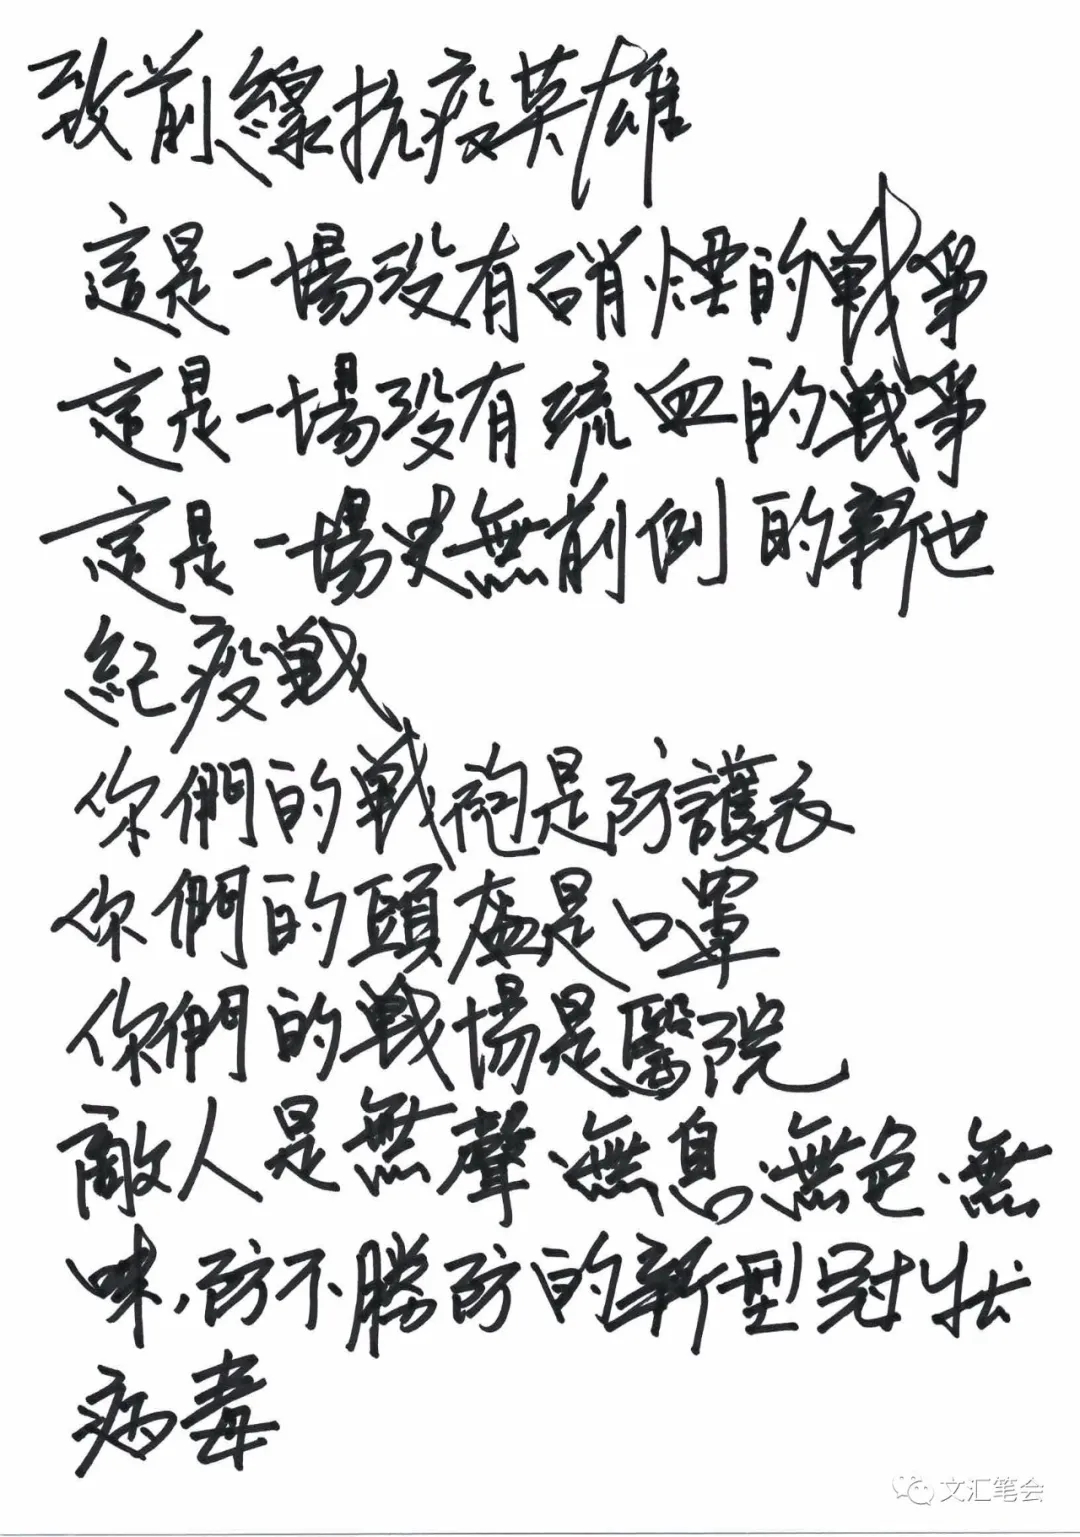 致前線抗疫英雄
這是一場没有硝煙的戰爭
這是一場没有流血的戰爭
這是一場史無前例的新世
紀疫戰
你們的戰袍是防護衣
你們的頭盔是口罩
你們的戰場是醫院
敵人是無聲、無息、無色、無
味，防不勝防的新型冠狀
病毒
文汇笔会